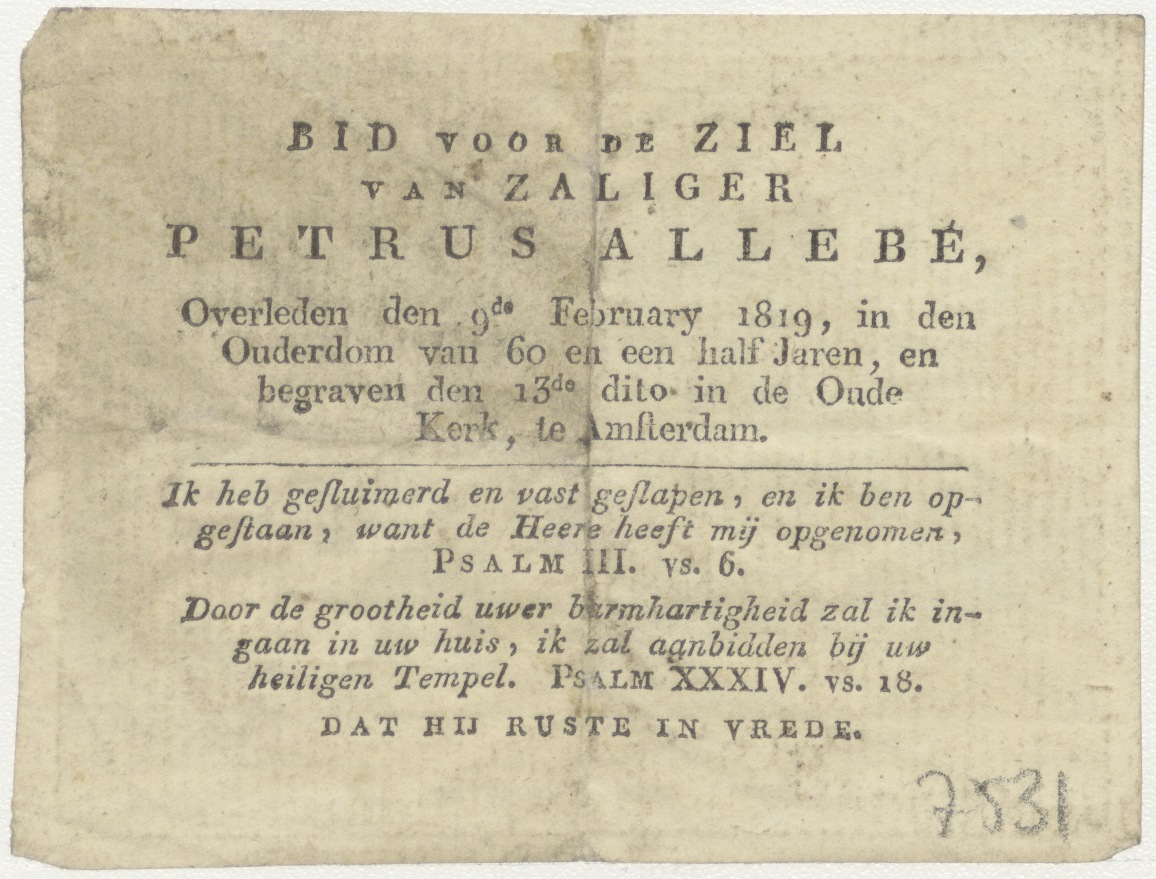 BID VOOR DE ZIEL
VAN ZALIGER
PETRUS ALLEBÉ,
Overleden den 9de February 1819, in den
Ouderdom van 60 en een half Jaren, en
begraven den 13de dito in de Oude
Kerk, te Amſterdam.
Ik heb geſluimerd en vast geſlapen, en ik ben op-
geſtaan, want de Heere heeft mij opgenomen,
PSALM III. vs. 6.
Door de grootheid uwer barmhartigheid zal ik in-
gaan in uw huis, ik zal aanbidden bij uw
heiligen Tempel. PSALM XXXIV. vs. 18.
DAT HIJ RUSTE IN VREDE.
7531